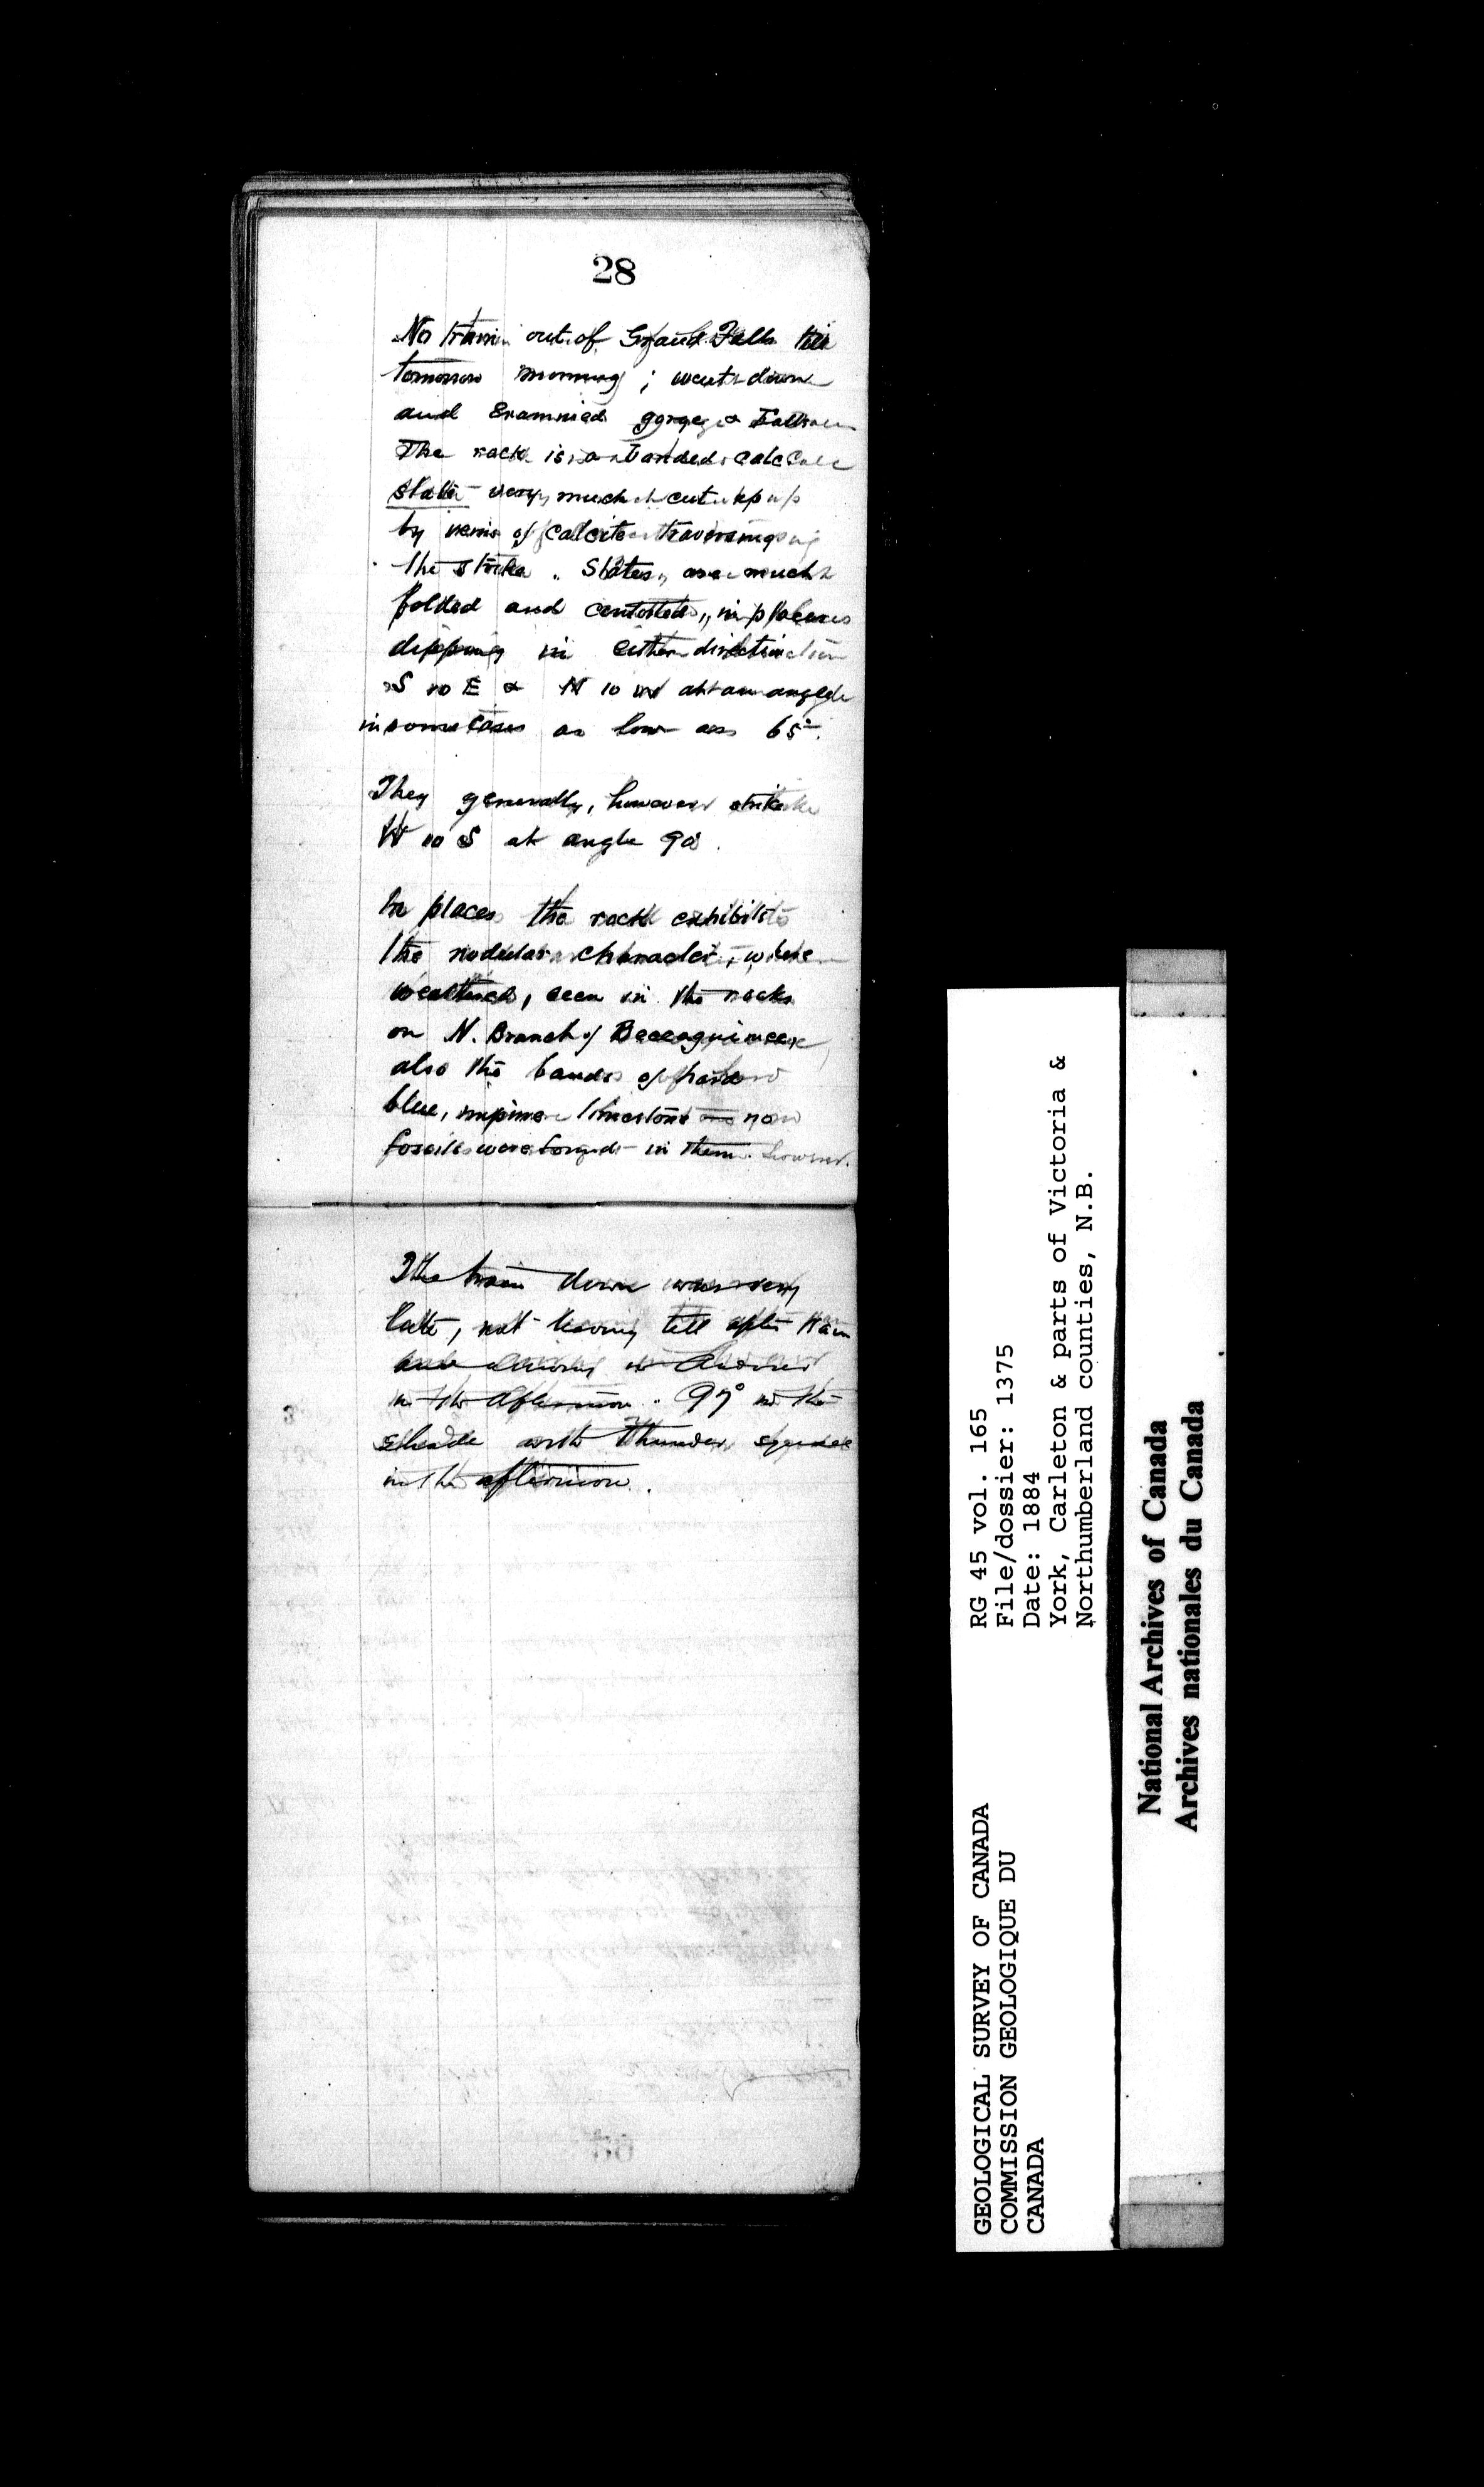 28
No train out of Grand Falls till
tomorrow morning; went down
and Examined gorge & Falls
The rock is a banded calc
slate very much cut up
by veins of calcite traversing
the strike. Slates are much
folded and contorted, in places
dipping in either direction
S 10 E & N 10 W at an angle
in some cases as low as 65°.
They generally, however strike
W 10 S at angle 90.
In places the rock exhibits
the nodular character, where
weathered, seen in the rocks
on N. Branch of Beccaguimec
also the bands of hard
blue, impure limestone no
fossils were found in them however.
The train down was very
late, not leaving till after 11 am
and arriving in Andover
in the afternoon. 97° in the
shade with thunder
in the afternoon.
RG 45 vol. 165
File/dossier: 1375
Date: 1884
York, Carleton & parts of Victoria &
Northumberland counties, N.B.
GEOLOGICAL SURVEY OF CANADA
COMMISSION GEOLOGIQUE DU
CANADA
National Archives of Canada
Archives nationales du Canada